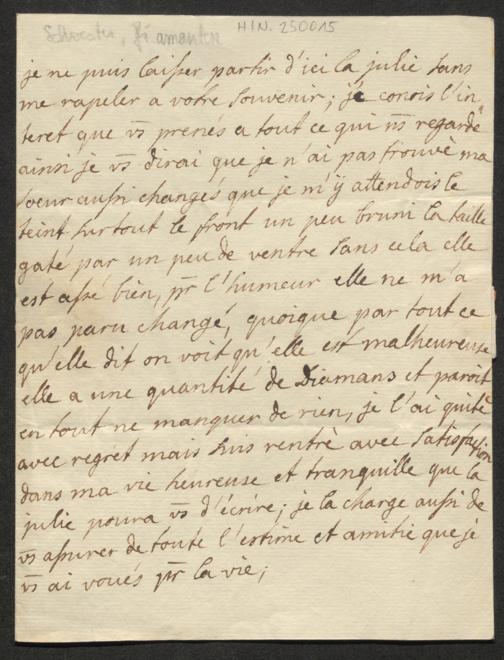 Schwester, Diamanten
HIN. 250015
je ne puis laisser partir d'ici la julie sans
me rapeler a votre souvenir; je conois l'in
teret que vs prenés a tout ce qui ns regarde
ainsi je vs dirai que je n'ai pas trouvé ma
soeur aussi changés que je m'ÿ attendois le
teint surtout le front un peu bruni la taille
gaté par un peu de ventre sans cela elle
est assé bien, pr l'humeur elle ne m'a
pas paru changé, quoique par tout ce
qu'elle dit on voit qu'elle est malheureuse
elle a une quantité de Diamans et paroit
en tout ne manquer de rien, je l'ai quité
avec regret mais suis rentré avec satisfaction
dans ma vie heureuse et tranquille que la
julie poura vs d'écrire; je la charge aussi de
vs assurer de toute l'estime et amitié que je
vs ai voués pr la vie;